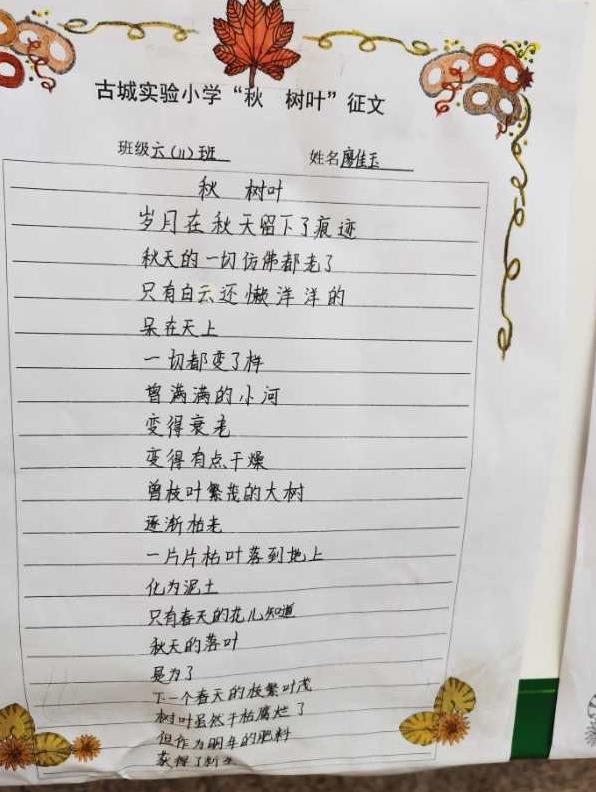 古城实验小学“秋 树叶”征文
班级六(11)班 姓名廖佳玉
秋 树叶
岁月在秋天留下了痕迹
秋天的一切仿佛都老了
只有白云还懒洋洋的
呆在天上
一切都变了样
曾满满的小河
变得衰老
变得有点干燥
曾枝叶繁茂的大树
逐渐枯老
一片片枯叶落到地上
化为泥土
只有春天的花儿知道
秋天的落叶
是为了
下一个春天的枝繁叶茂
树叶虽然干枯腐烂了
但作为明年的肥料
获得了新生